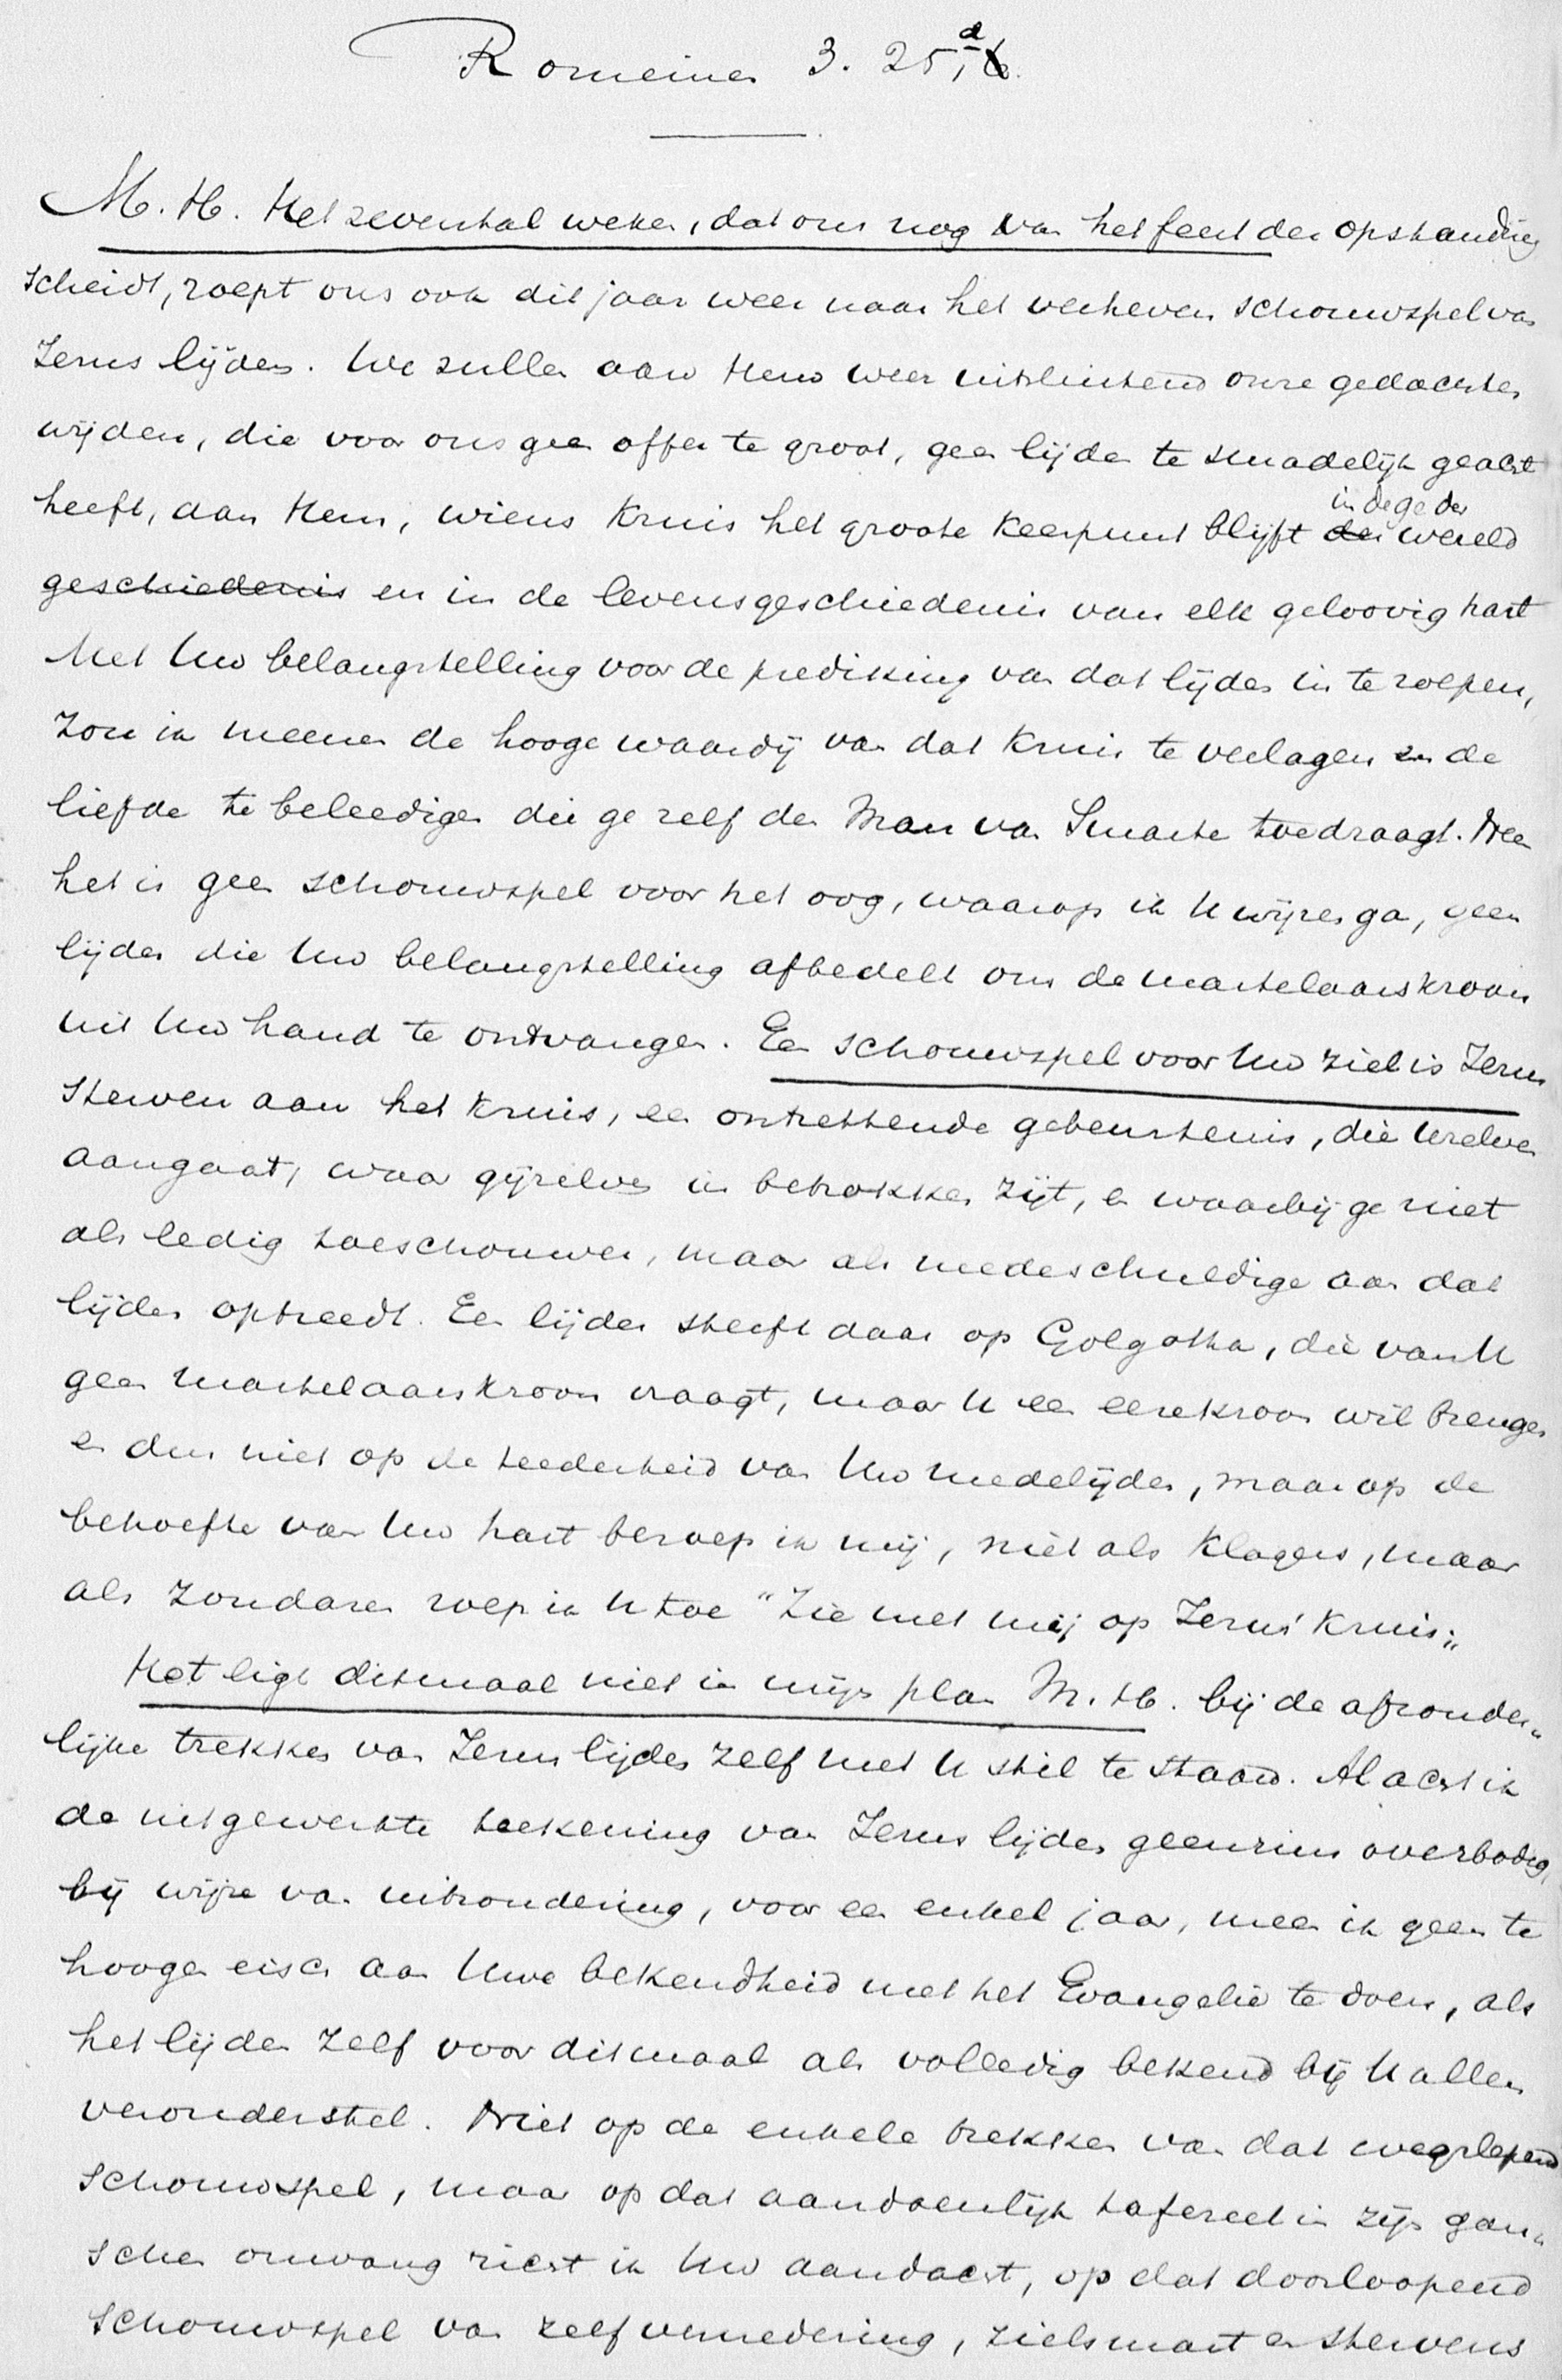 Romeinen 3. 25, a
M. H. Het zevental weken, dat ons nog van het feest der opstanding
scheidt, roept ons ook dit jaar weer naar het verheven schouwspel van
Jezus lijden. We zullen aan Hem weer uitsluitend onze gedachten
wijden, die voor ons geen offer te groot, geen lijden te smadelijk geacht
heeft, aan Hem, wiens Kruis het groote Keerpunt blijft der in de ge der wereld
geschiedenis en in de levensgeschiedenis van elk geloovig hart
Met Uw belangstelling voor de prediking van dat lijden in te roepen,
zou ik meenen de hooge waardij van dat Kruis te verlagen en de
liefde te beleedigen die ge zelf den Man van Smarte toedraagt. Neen
het is geen schouwspel voor het oog, waarop ik U wijzen ga, geen
lijder die Uw belangstelling afbedelt om de martelaarskroon
uit Uw hand te ontvangen. Een schouwspel voor Uw ziel is Jezus
sterven aan het Kruis, een ontzettende gebeurtenis, die Uzelven
aangaat, waar gijzelven in betrokken zijt, en waarbij ge niet
als ledig toeschouwer, maar als medeschuldige aan dat
lijden optreedt. Een lijder sterft daar op Golgotha, die van U
geen martelaarskroon vraagt, maar U een eerekroon wil brengen
en dus niet op de teederheid van Uw medelijden, maar op de
behoefte van Uw hart beroep ik mij, niet als Klagers, maar
als zondaren roep ik U toe "Zie met mij op Jezus' Kruis."
Het ligt ditmaal niet in mijn plan M. H. bij de afzonder-
lijke trekken van Jezus lijden zelf met U stil te staan. Al acht ik
de uitgewerkte teekening van Jezus lijden geenszins overbodig,
bij wijze van uitzondering, voor een enkel jaar, meen ik geen te
hoogen eisch aan Uwe bekendheid met het Evangelie te doen, als
het lijden zelf voor ditmaal als volledig bekend bij U allen
veronderstel. Niet op de enkele trekken van dat wegslepend
schouwspel, maar op dat aandoenlijk tafereel in zijn gan-
schen omvang richt ik Uw aandacht, op dat doorloopend
schouwspel van zelfvernedering, zielsmart en stervens